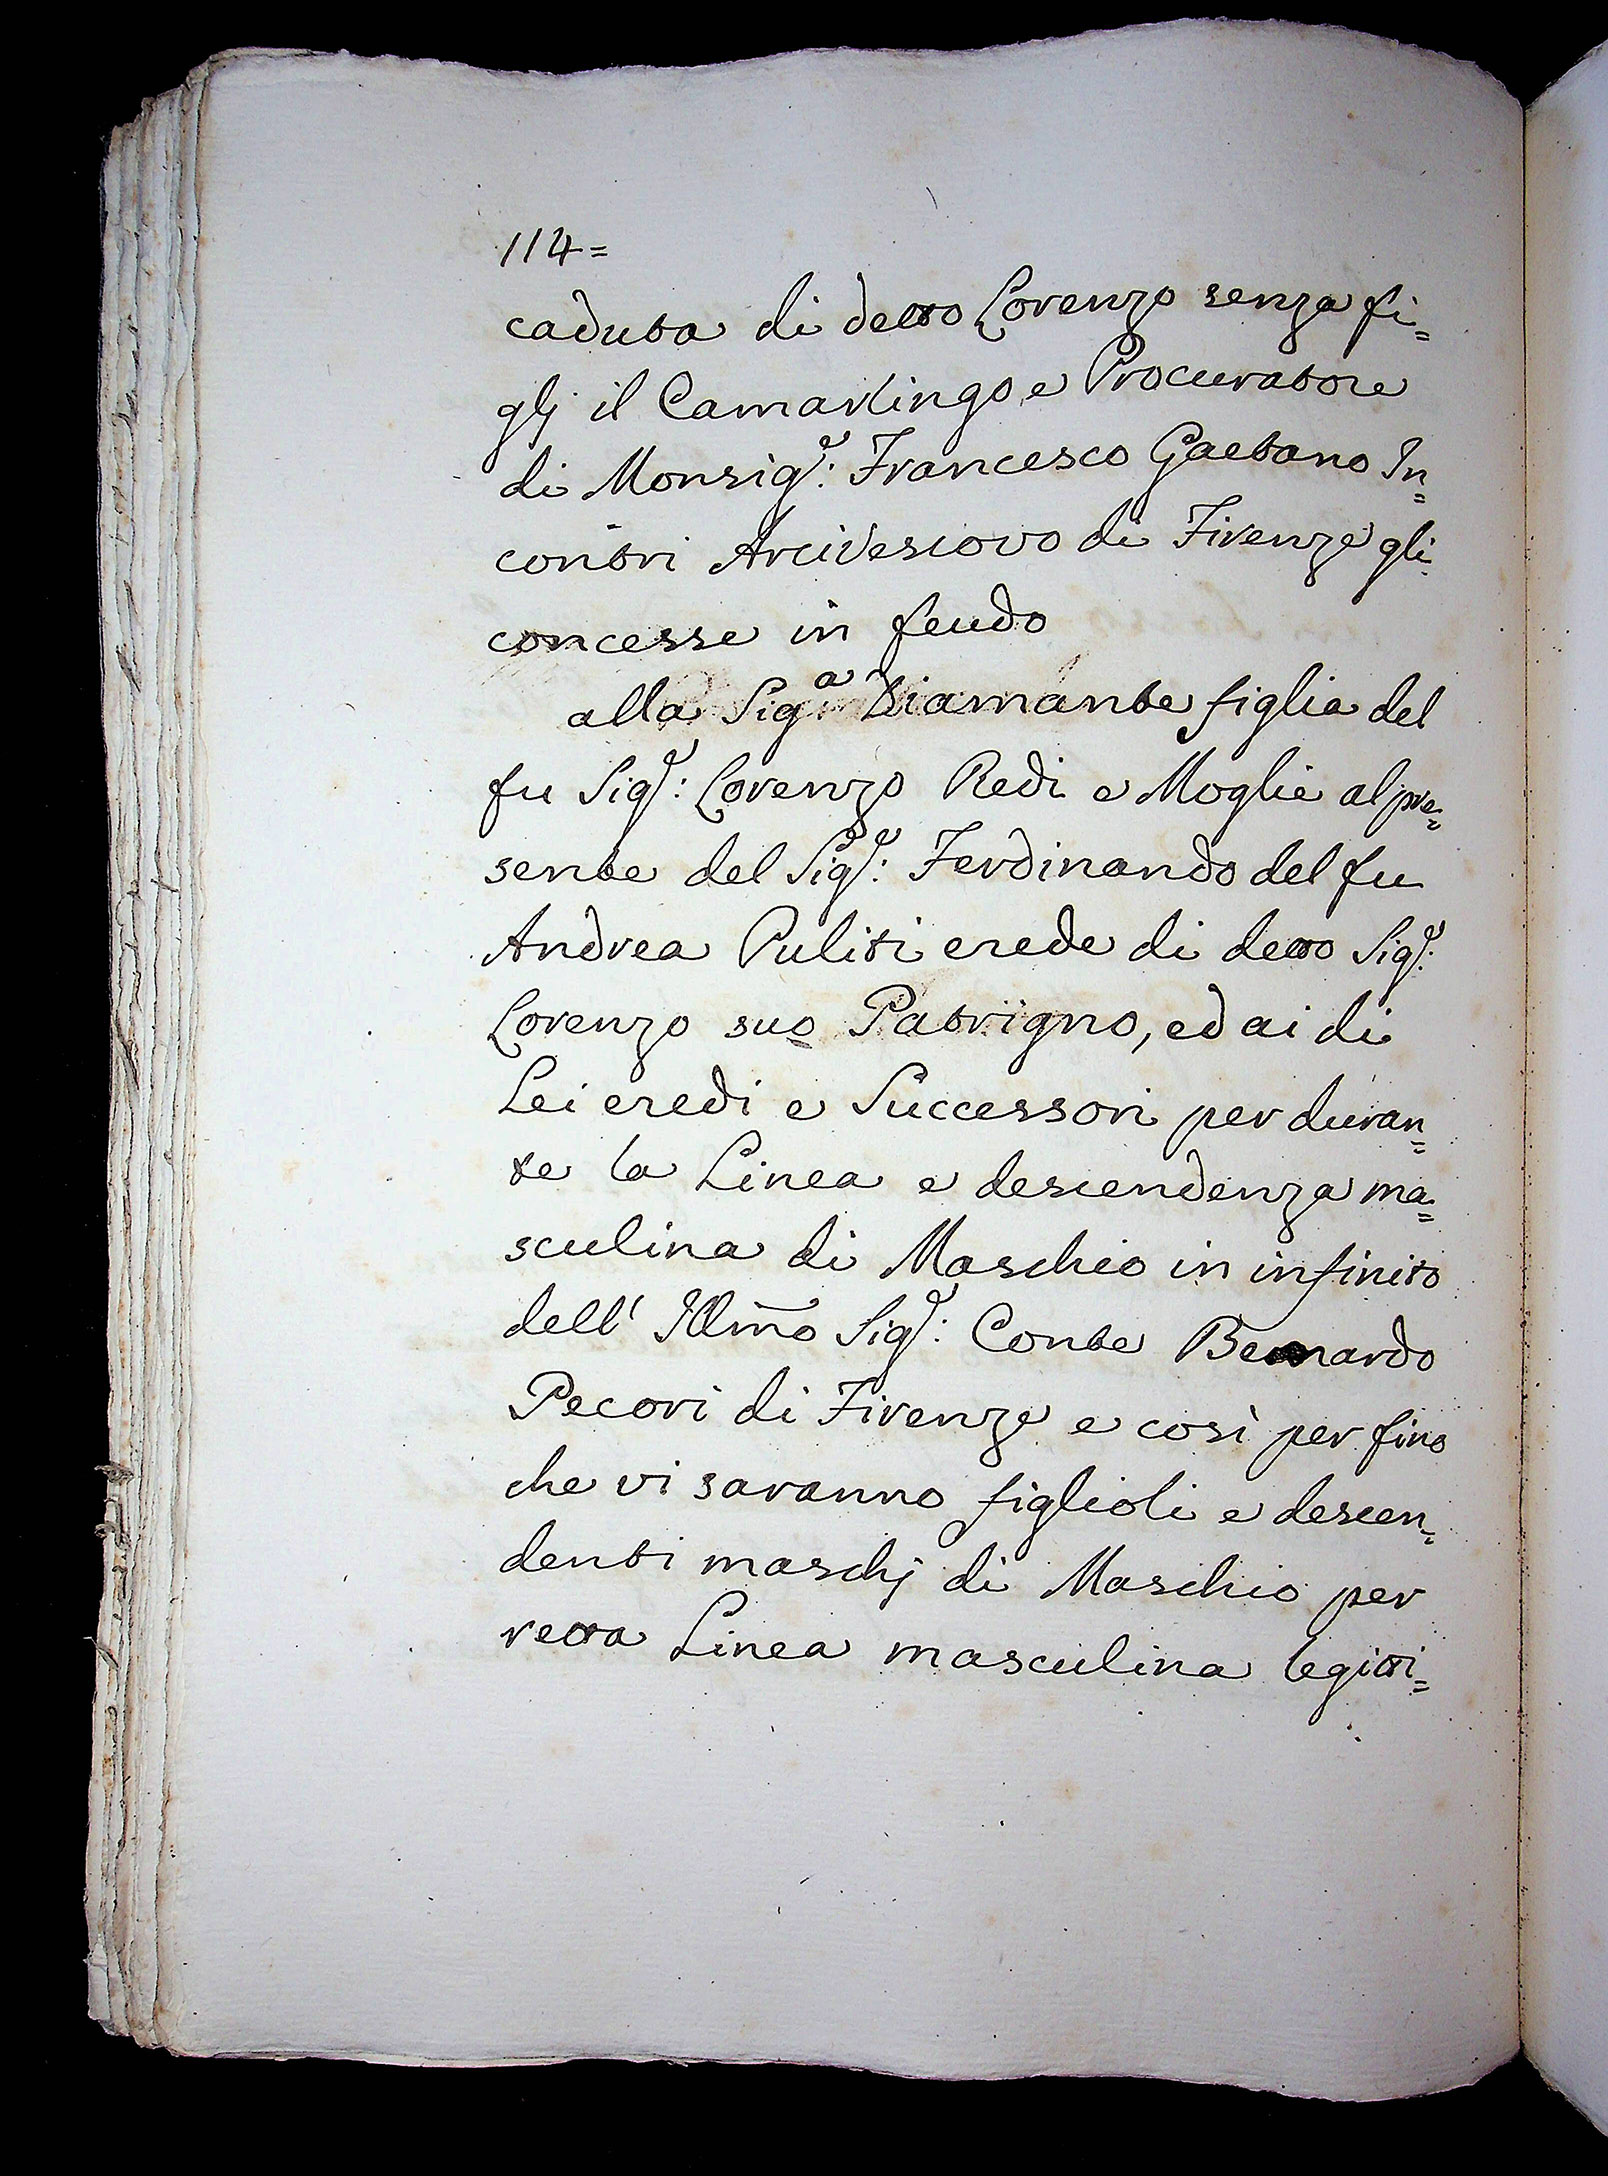 114=
caduta di detto Lorenzo senza fi=
glj il Camarlingo e Procuratore
di Monsig.r: Francesco Gaetano In=
contri Arcivescovo di Firenze gli
concesse in feudo
alla Sig.a Diamante figlia del
fu Sig.r: Lorenzo Redi e Moglie al pre=
sente del Sig.r: Ferdinando del fu
Andrea Puliti erede di detto Sig.r:
Lorenzo suo Patrigno, ed ai di
Lei eredi e Successori per duran=
te la Linea e descendenza ma=
sculina di Maschio in infinito
dell' Illmo Sig.r: Conte Bernardo
Pecori di Firenze e così per fino
che vi saranno figlioli e descen=
denti maschj di Maschio per
retta Linea masculina legitti=